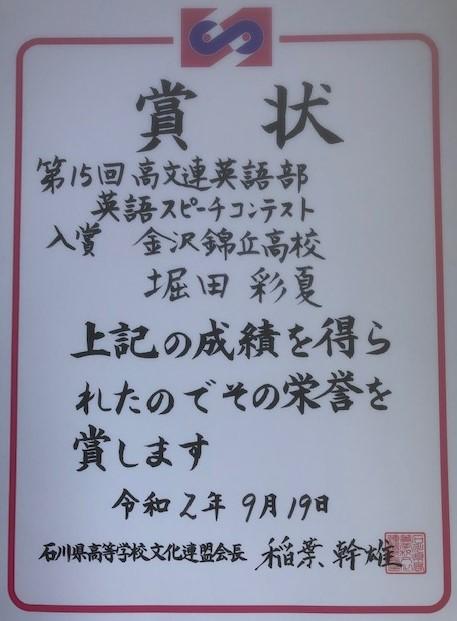 賞状
第15回高文連英語部
英語スピーチコンテスト
入賞 金沢錦丘高校
堀田彩夏
上記の成績を得ら
れたのでその栄誉を
賞します
令和2年9月19日
石川県高等学校文化連盟会長 稲葉幹雄